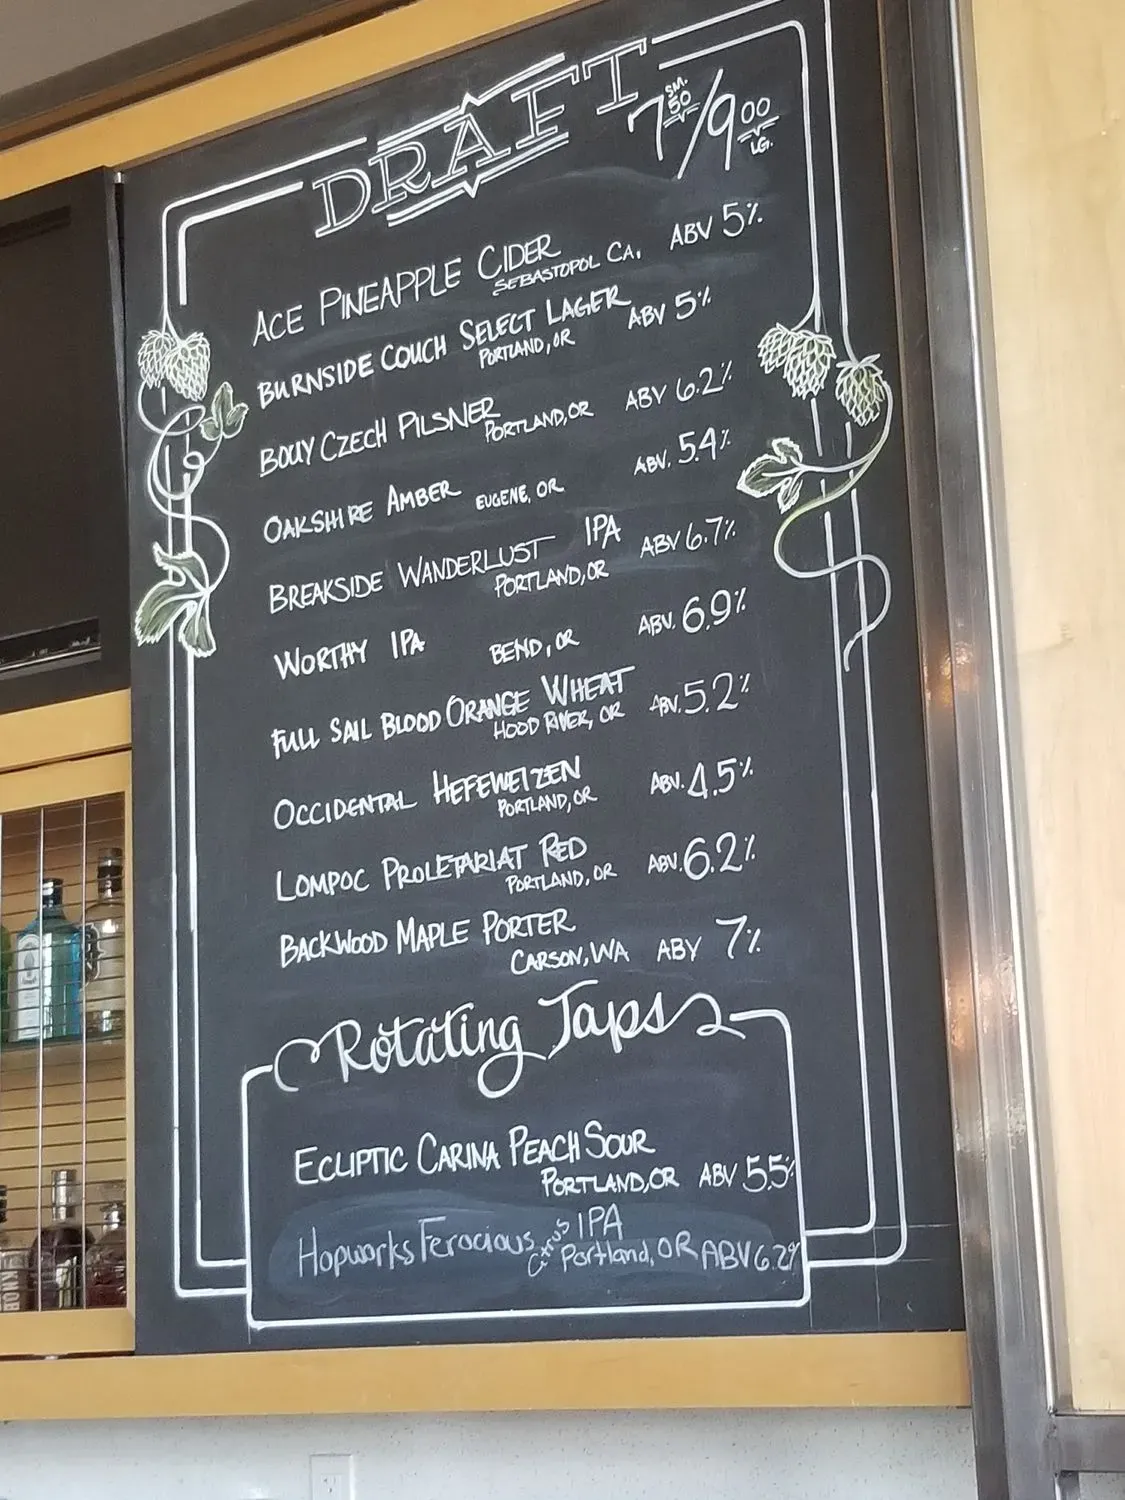 DRAFT 7 50 SM. / 9 00 LG.
ACE PINEAPPLE CIDER ABV 5%
SEBASTOPOL CA.
BURNSIDE COUCH SELECT LAGER ABV 5%
PORTLAND, OR
BOUY CZECH PILSNER ABV 6.2%
PORTLAND, OR
OAKSHIRE AMBER EUGENE, OR ABV. 5.4%
BREAKSIDE WANDERLUST IPA ABV 6.7%
PORTLAND, OR
WORTHY IPA BEND, OR ABV. 6.9%
FULL SAIL BLOOD ORANGE WHEAT ABV. 5.2%
HOOD RIVER, OR
OCCIDENTAL HEFEWEIZEN ABV. 4.5%
PORTLAND, OR
LOMPOC PROLETARIAT RED ABV. 6.2%
PORTLAND, OR
BACKWOOD MAPLE PORTER
CARSON, WA ABV 7%
Rotating Taps
ECLIPTIC CARINA PEACH SOUR
PORTLAND, OR ABV 5.5%
Hopworks Ferocious Citrus IPA
Portland, OR ABV 6.2%